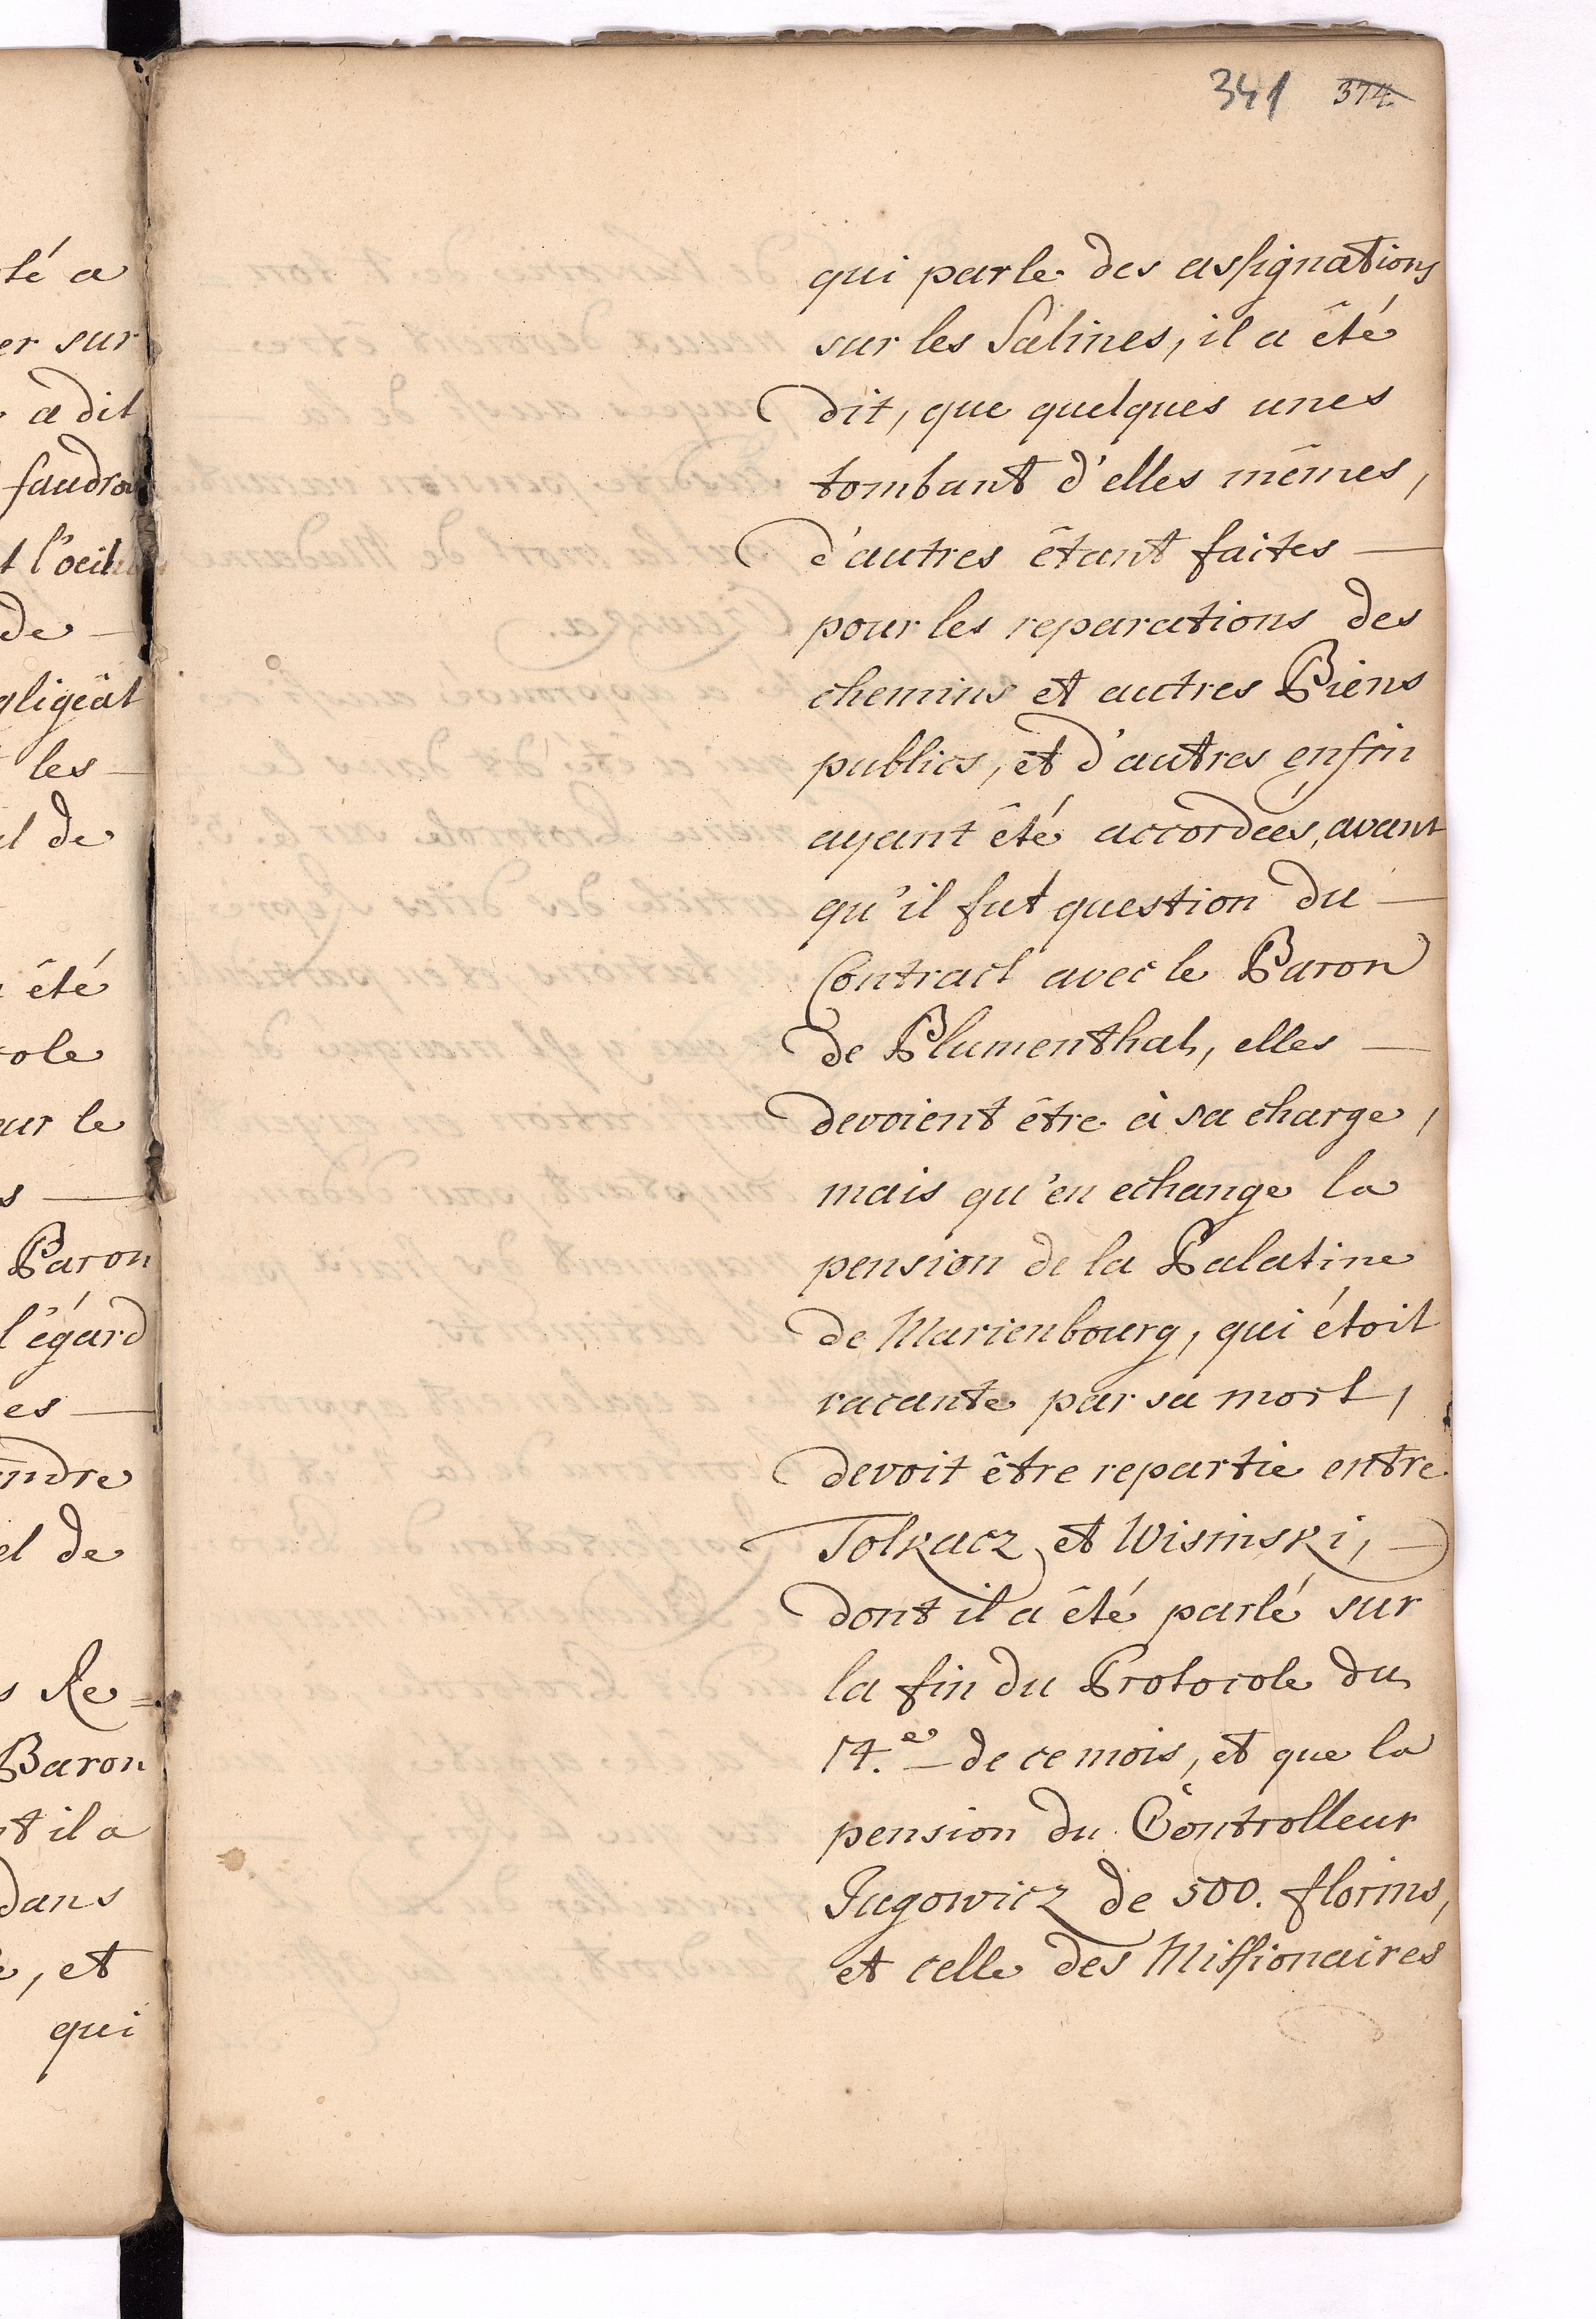 341 374
té a
er sur
a dit
faudro
t l'oeil
de —
gligeât
les —
el de
été
cole
ur le
s —
Baron
l'égard
es —
indre
el de
s Re=
Baron
t il a
dans
e, et
qui
qui parle des assignations
sur les Salines, il a été
dit, que quelques unes
tombant d'elles mêmes,
d'autres étant faites —
pour les reparations des
chemins et autres Biens
publics, et d'autres enfin
ayant été accordées, avant
qu'il fut question du —
Contract avec le Baron
de Blumenthal, elles —
devoient être à sa charge,
mais qu'en echange la
pension de la Palatine
de Marienbourg, qui étoit
vacante par sa mort,
devoit être repartie entre
Tolkacz et Wisinski, —
dont il a été parlé sur
la fin du Protocole du
14.e — de ce mois, et que la
pension du Controlleur
Jugowicz de 500. florins,
et celle des Missionaires